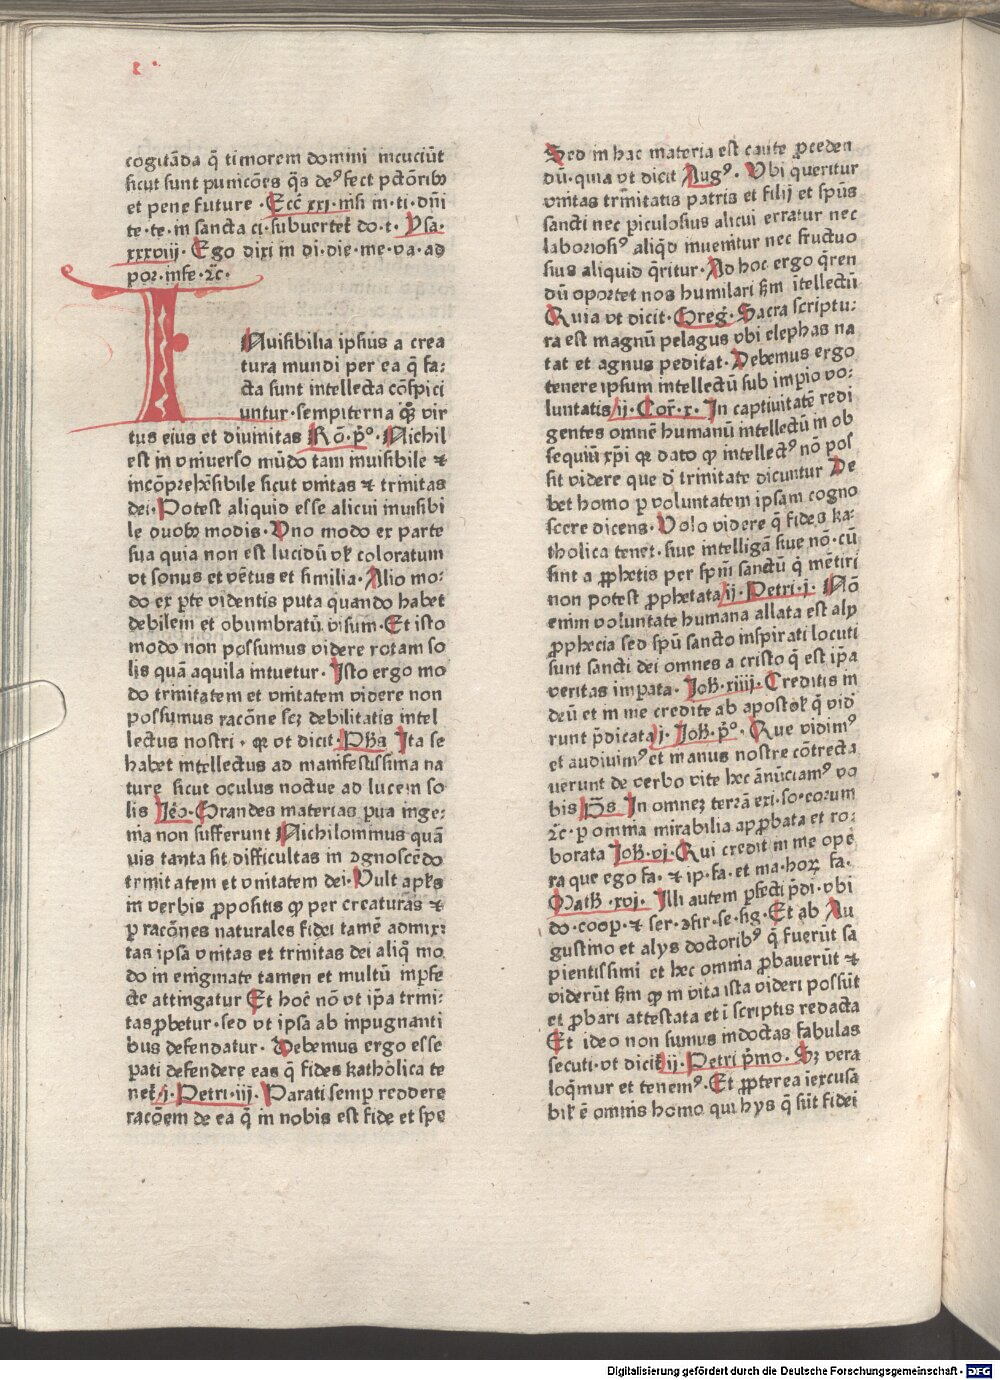 cogitãda q̃ timorem domini incuciũt
sicut sunt punicões q̃s deꝰ fecit pctõribꝫ
et pene future · Eccĩ xxi · nisi in · ti · dñi
te · te · in sancta ci · subuertet́ do · t · Ysa ·
xxxviij · Ego dixi in di · die · me · va · ad
por · infe · ⁊c̃ ·
INuisibilia ipsius a crea
tura mundi per ea q̃ fa⸗
cta sunt intellecta cõspici
untur · sempiterna qꝫ vir
tus eius et diuinitas Rõ · p̃º · Nichil
est in vniuerso mũdo tam inuisibile ⁊
incõprehẽsibile sicut vnitas ⁊ trinitas
dei · Potest aliquid esse alicui inuisibi
le duobꝫ modis · Uno modo ex parte
sua quia non est lucidũ vĺ coloratum
vt sonus et vẽtus et similia · Alio mo⸗
do ex ꝑte videntis puta quando habet
debilem et obumbratũ visum · Et isto
modo non possumus videre rotam so
lis quã aquila intuetur · Isto ergo mo
do trinitatem et vnitatem videre non
possumus racõne scꝫ debilitatis intel
lectus nostri · qꝛ vt dicit · Phs Ita se
habet intellectus ad manifestissima na
ture sicut oculus noctue ad lucem so
lis Jeõ · Grandes materias pua inge⸗
nia non sufferunt Nichilominus quã
uis tanta sit difficultas in ꝯgnoscẽdo
trinitatem et vnitatem dei · Vult apĺs
in verbis ꝓpositis ꝙ per creaturas ⁊
ꝑ racões naturales fidei tamẽ admix⸗
tas ipsa vnitas et trinitas dei aliq̃ mo
do in enigmate tamen et multũ inꝑfe
cte attingatur Et hoc nõ vt ip̃a trini⸗
tas ꝓbetur · sed vt ipsa ab inpugnanti
bus defendatur · Debemus ergo esse
ꝑati defendere eas q̃ fides katholica te
net́ j · Petri · iij · Parati semꝑ reddere
racõem de ea q̃ in nobis est fide et spe
Sed in hac materia est caute ꝓceden
dũ · quia vt dicit Augꝰ · Vbi queritur
vnitas trinitatis patris et filij et sp̃us
sancti nec piculosius alicui erratur nec
laboriosiꝰ aliqd inuenitur nec fructuo
sius aliquid q̃ritur · Ad hoc ergo q̃ren
dũ oportet nos humilari ẜm ĩtellectũ
Quia vt dicit · Greg̃ · Sacra scriptu⸗
ra est magnũ pelagus vbi elephas na
tat et agnus peditat · Debemus ergo
tenere ipsum intellectũ sub impio vo⸗
luntatis ij · Cor̃ · x · In captiuitatẽ redi
gentes omnẽ humanũ intellectũ in ob
sequiũ xp̃i qꝛ dato ꝙ intellectꝰ nõ pos
sit videre que d̃ trinitate dicuntur De
bet homo ꝑ voluntatem ipsam cogno
scere dicens · Volo videre q̃ fides ka⸗
tholica tenet · siue intelligã siue nõ · cũ
sint a ꝓphetis per sp̃m sanctũ q̃ mẽtiri
non potest ꝓphetata ij · Petri · j · Nõ
enim voluntate humana allata est alꝑ
ꝓphecia sed sp̃u sancto inspirati locuti
sunt sancti dei omnes a cristo q̃ est ip̃a
veritas imꝑata · Joh̃ · xiiij · Creditis in
deũ et in me credite ab apostoĺ q̃ vid
runt p̃dicata j · Joh̃ · p̃º · Que vidimꝰ
et audiuimꝰ et manus nostre cõtrecta
uerunt de verbo vite hec ãnũciamꝰ vo
bis P̃s In omneꝫ terrã exi · so · eorum
⁊c̃ · ꝑ omnia mirabilia apꝓbata et ro⸗
borata Joh̃ · vj · Qui credit in me ope
ra que ego fa · ⁊ ip · fa · et ma · hoꝝ fa ·
Math̃ · xvj · Illi autem ꝓfecti p̃di · vbi
do · coop · ⁊ ser · ꝯfir · se · sig · Et ab Au
gustino et alys doctoribꝰ q̃ fuerũt sa
pientissimi et hec omnia ꝓbauerũt ⁊
viderũt ẜm ꝙ in vita ista videri possũt
et ꝓbari attestata et ĩ scriptis redacta
Et ideo non sumus indoctas fabulas
secuti · vt dicit́ ij · Petri p̃mo · Sꝫ vera
loq̃mur et tenemꝰ · Et ꝓpterea ĩexcusa
biĺ ẽ omnis homo qui hys q̃ sũt fidei
Digitalisierung gefördert durch die Deutsche Forschungsgemeinschaft · DFG